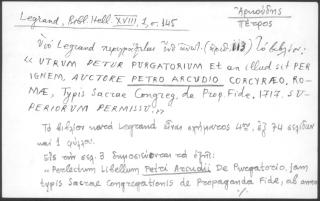 Legrand, Bibl. Hell. XVIII, 1, σ. 145
Ἀρκούδης
Πέτρος
Ὑπὸ Legrand περιγράφεται ὑπ' ἀριθ. 113 τὸ βιβλίον:
« UTRUM DETUR PURGATORIUM Et an illud sit PER
IGNEM, AUCTORE PETRO ARCUDIO CORCYRÆO, RO-
MÆ, Typis Sacrae Congreg. de Prop. Fide. 1717. SU-
PERIORUM PERMISSU.»
Τὸ βιβλίον κατὰ Legrand εἶναι σχήματος 4ου, ἐξ 74 σελίδων
καὶ 1 φύλλου.
Εἰς τὴν σελ. 3 δημοσιεύονται τὰ ἑξῆς:
« Perlectum Libellum Petri Arcudii De Purgatorio, jam
typis Sacrae Congregationis de Propaganda Fide, ab anno